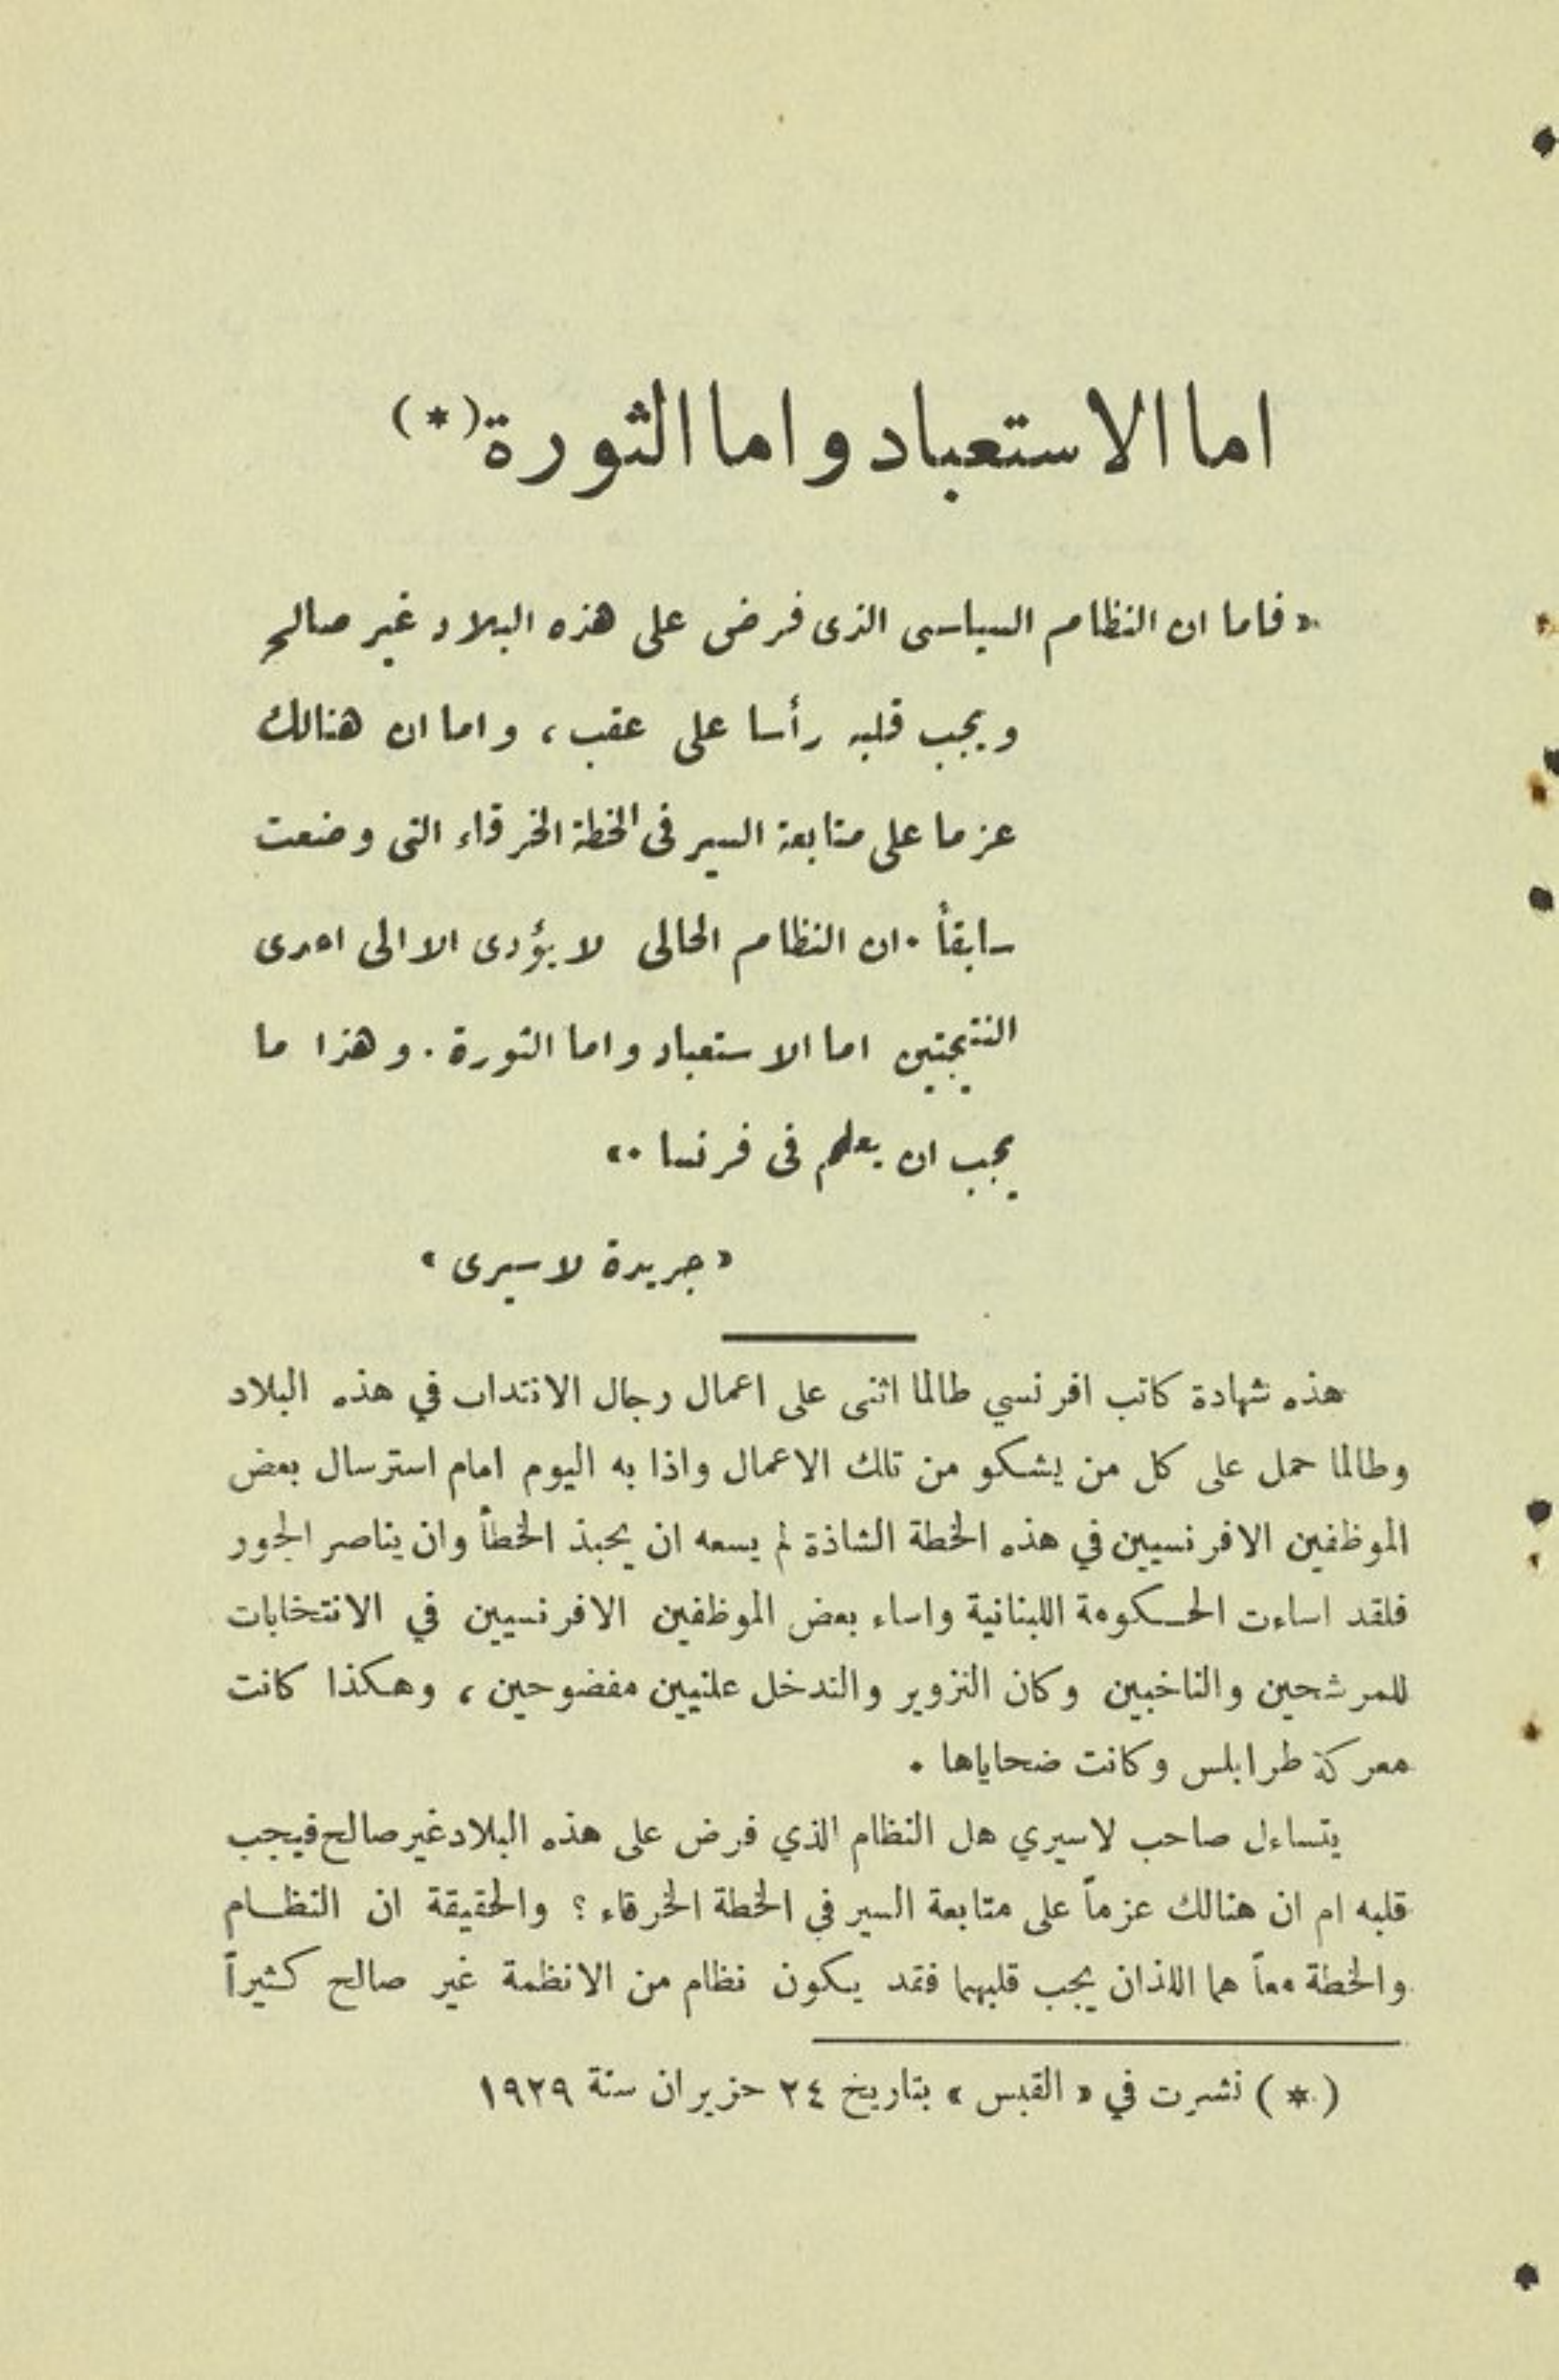 اما الاستعباد واما الثورة (*)
«فاما ان النظام السياسى الذى فرض على هذه البلاد غير صالح
ويجب قلبه رأسا على عقب، واما ان هنالك
عزما على متابعة السير فى الخطة الخرقاء التى وضعت
سابقاً . ان النظام الحالى لا يؤدى الا الى احدى
النتيجتين اما الاستعباد واما الثورة . وهذا ما
يجب ان يعلم فى فرنسا .»
«جريدة لاسيرى»
هذه شهادة كاتب افرنسي طالما اثنى على اعمال رجال الانتداب في هذه البلاد
وطالما حمل على كل من يشكو من تلك الاعمال واذا به اليوم امام استرسال بعض
الموظفين الافرنسيين في هذه الخطة الشاذة لم يسعه ان يحبذ الخطأ وان يناصر الجور
فلقد اساءت الحكومة اللبنانية واساء بعض الموظفين الافرنسيين في الانتخابات
للمرشحين والناخبين وكان التزوير والتدخل علنيين مفضوحين، وهكذا كانت
معركة طرابلس وكانت ضحاياها .
يتساءل صاحب لاسيري هل النظام الذي فرض على هذه البلاد غير صالح فيجب
قلبه ام ان هنالك عزماً على متابعة السير في الخطة الخرقاء ؟ والحقيقة ان النظام
والخطة معاً هما اللذان يجب قلبهما فقد يكون نظام من الانظمة غير صالح كثيراً
(*) نشرت في «القبس» بتاريخ ٢٤ حزيران سنة ١٩٢٩